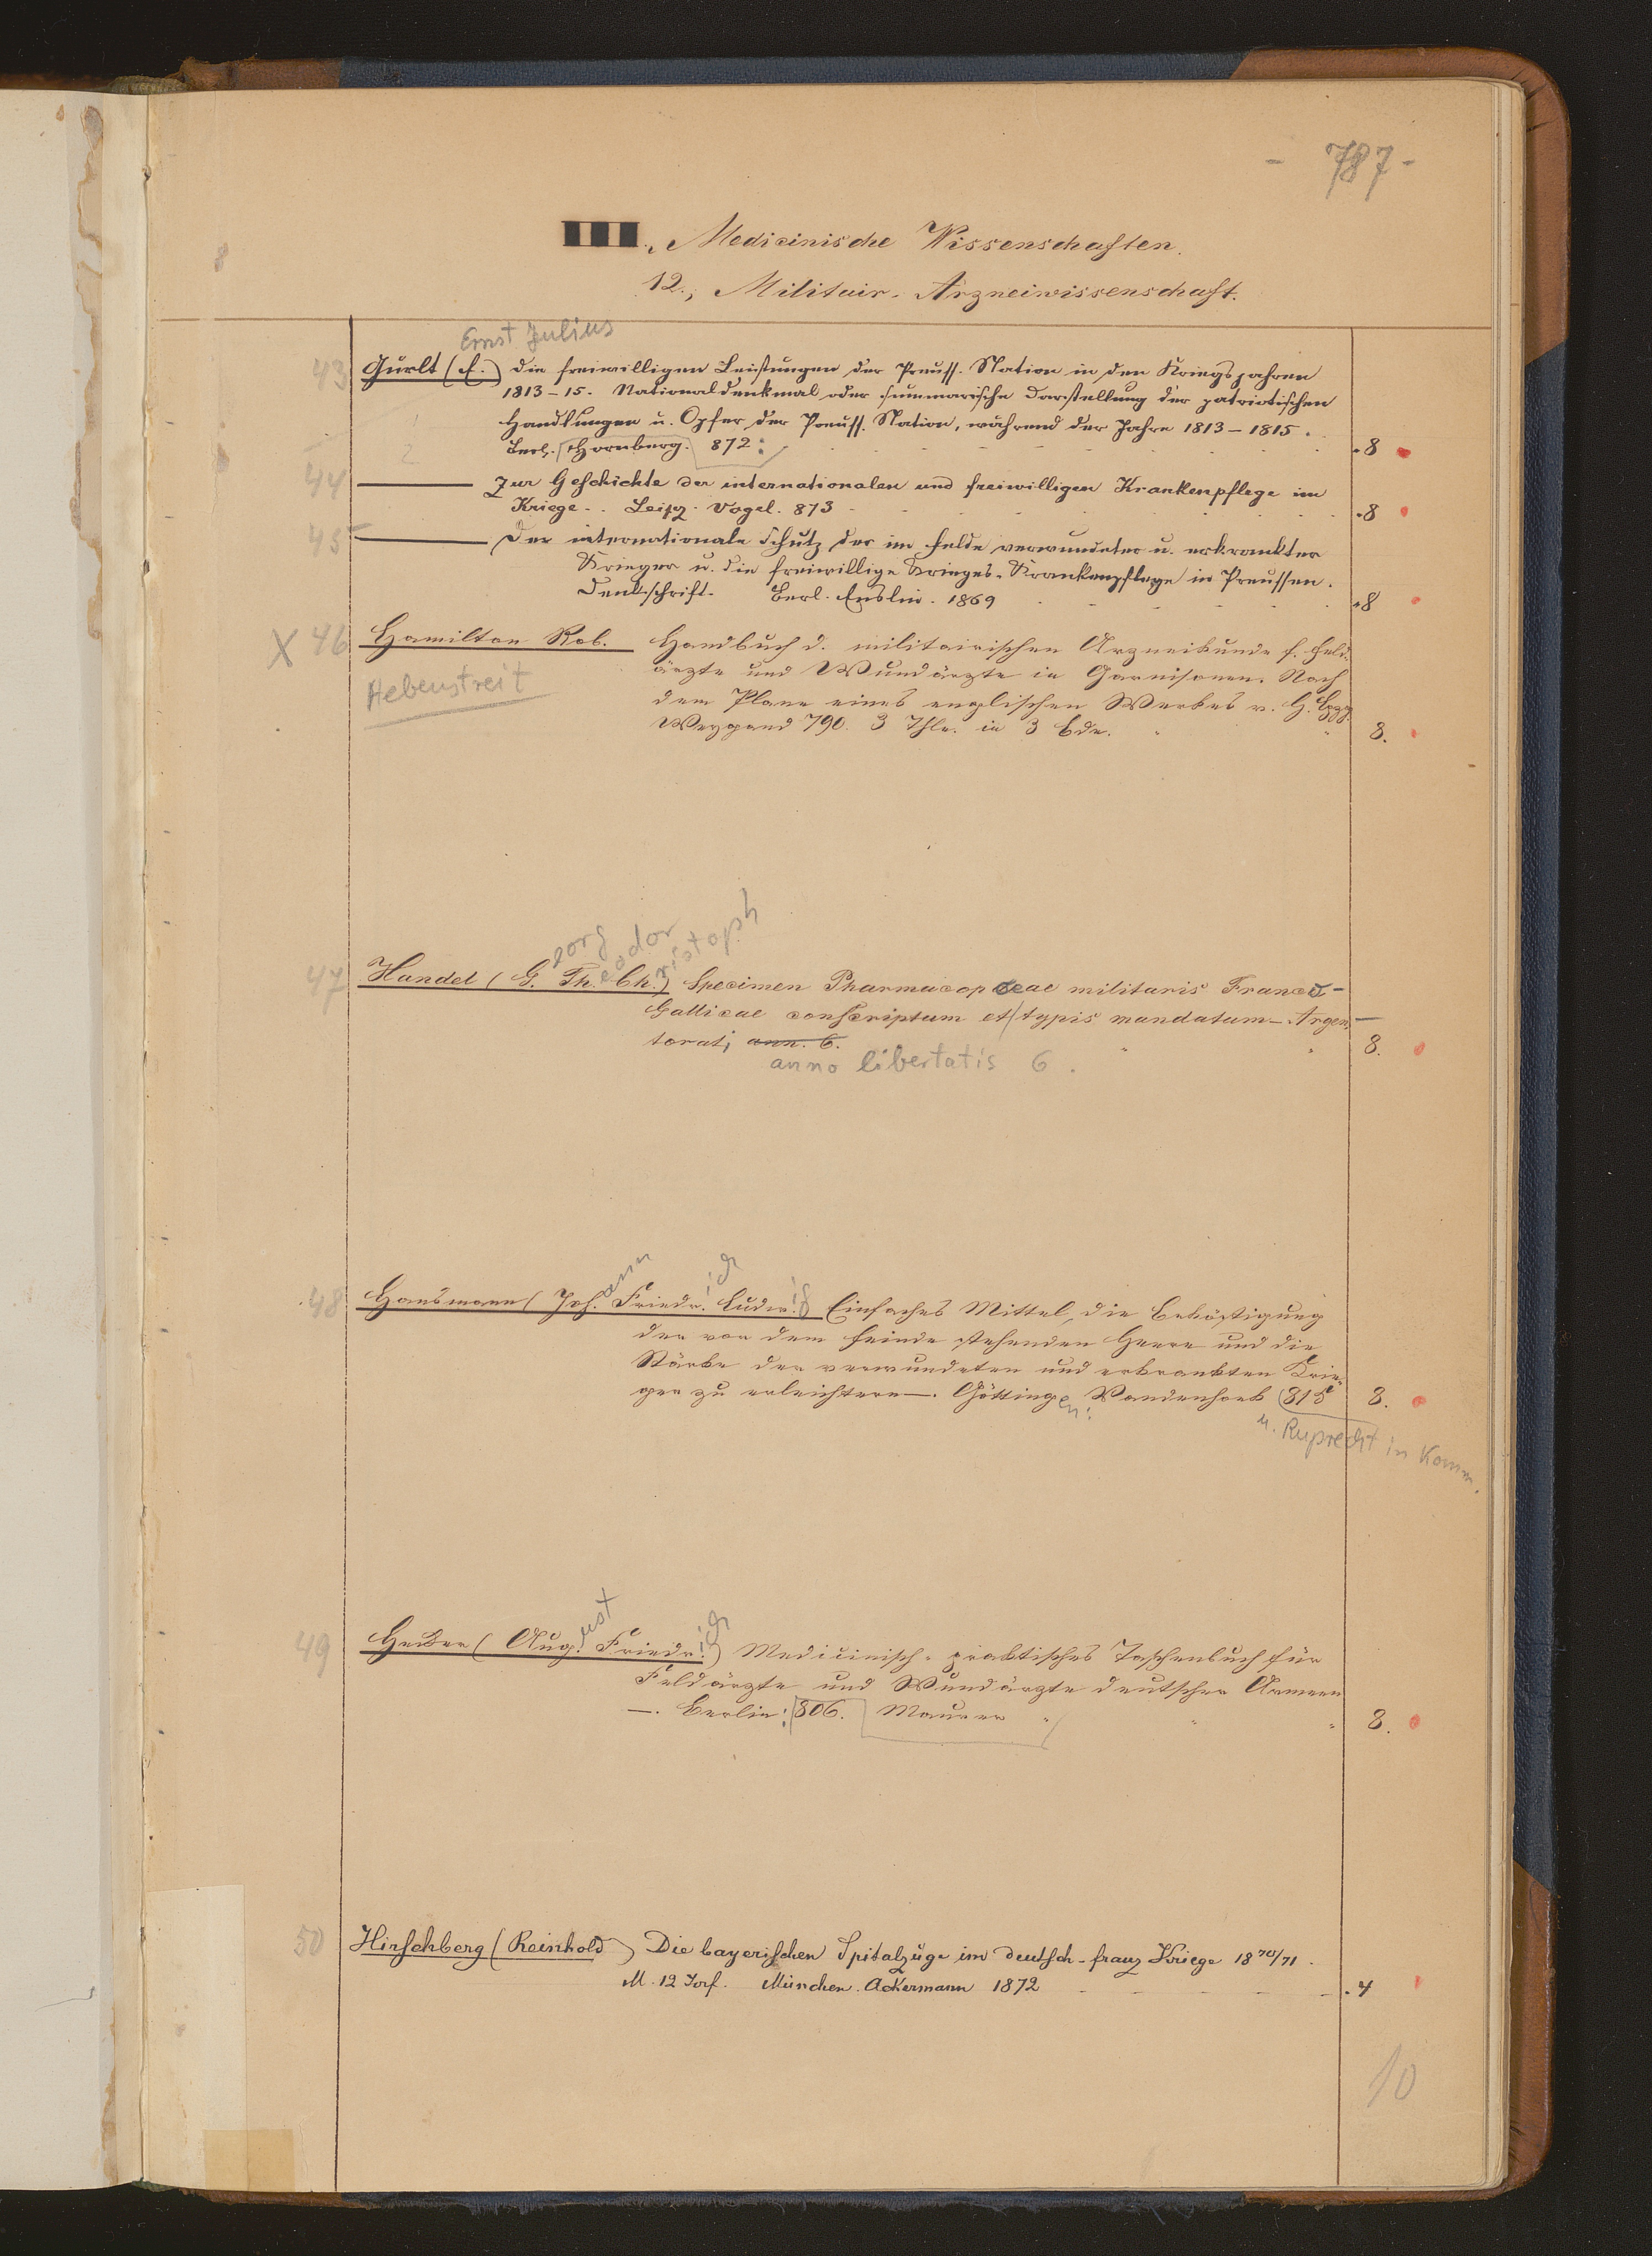 - 787 -
III., Medicinische Wissenschaften.
12., Militair-Arzneiwissenschaft.
Ernst Julius
43 Gurlt (E.) Die freiwilligen Leistungen der Preuss. Nation in den Kriegsjahren
1813-15. Nationaldenkmal oder summarische Darstellung der patriotischen
Handlungen u. Opfer der Preuss. Nation, während der Jahre 1813-1815.
Berl. 872: .8
44 Zur Geschichte der internationalen und freiwilligen Krankenpflege im
Kriege.. Leipz. Vogel. 873 .8
45 Der internationale Schutz der im Felde verwundeter u. erkrankter
Krieger u. die freiwillige Krieges-Krankenpflege in Preussen.
Denkschrift. Berl. Enslin. 1869 .8
X 46 Hamilton Rob. Handbuch d. militairischen Arzneikunde f. Feld-
Hebenstreit
ärzte und Wundärzte in Garnisonen. Nach
dem Plane eines englischen Werkes v. H. Lpzg.
Weygand 790. 3 Thle. in 3 Bde. 8.
eorg eodor ristoph
47 Handel (G. Th. Ch.) Specimen Pharmacopoeae militaris Franco-
Gallicae conscriptum et typis mandatum - Argen-
torati, ann. 6. 8.
anno libertatis 6.
ann ich ig
48 Hausmann (Joh. Friedr. Ludw.) Einfaches Mittel, die Beköstigung
der vor dem Feinde stehenden Heere und die
Stärke der verwundeten und erkrankten Krie-
ger zu erleichtern -. Göttingen: Vandenhoek 815 8.
u. Ruprecht in Komm.
ust ich
49 Hecker (Aug. Friedr.) Medicinisch-praktisches Taschenbuch für
Feldärzte und Wundärzte deutscher Armeen
-. Berlin: 806. Maurer 8.
50 Hirschberg (Reinhold) Die bayerischen Spitalzüge im deutsch-franz Kriege 1870/71.
M. 12 Torf. München. Ackermann 1872 .4
10